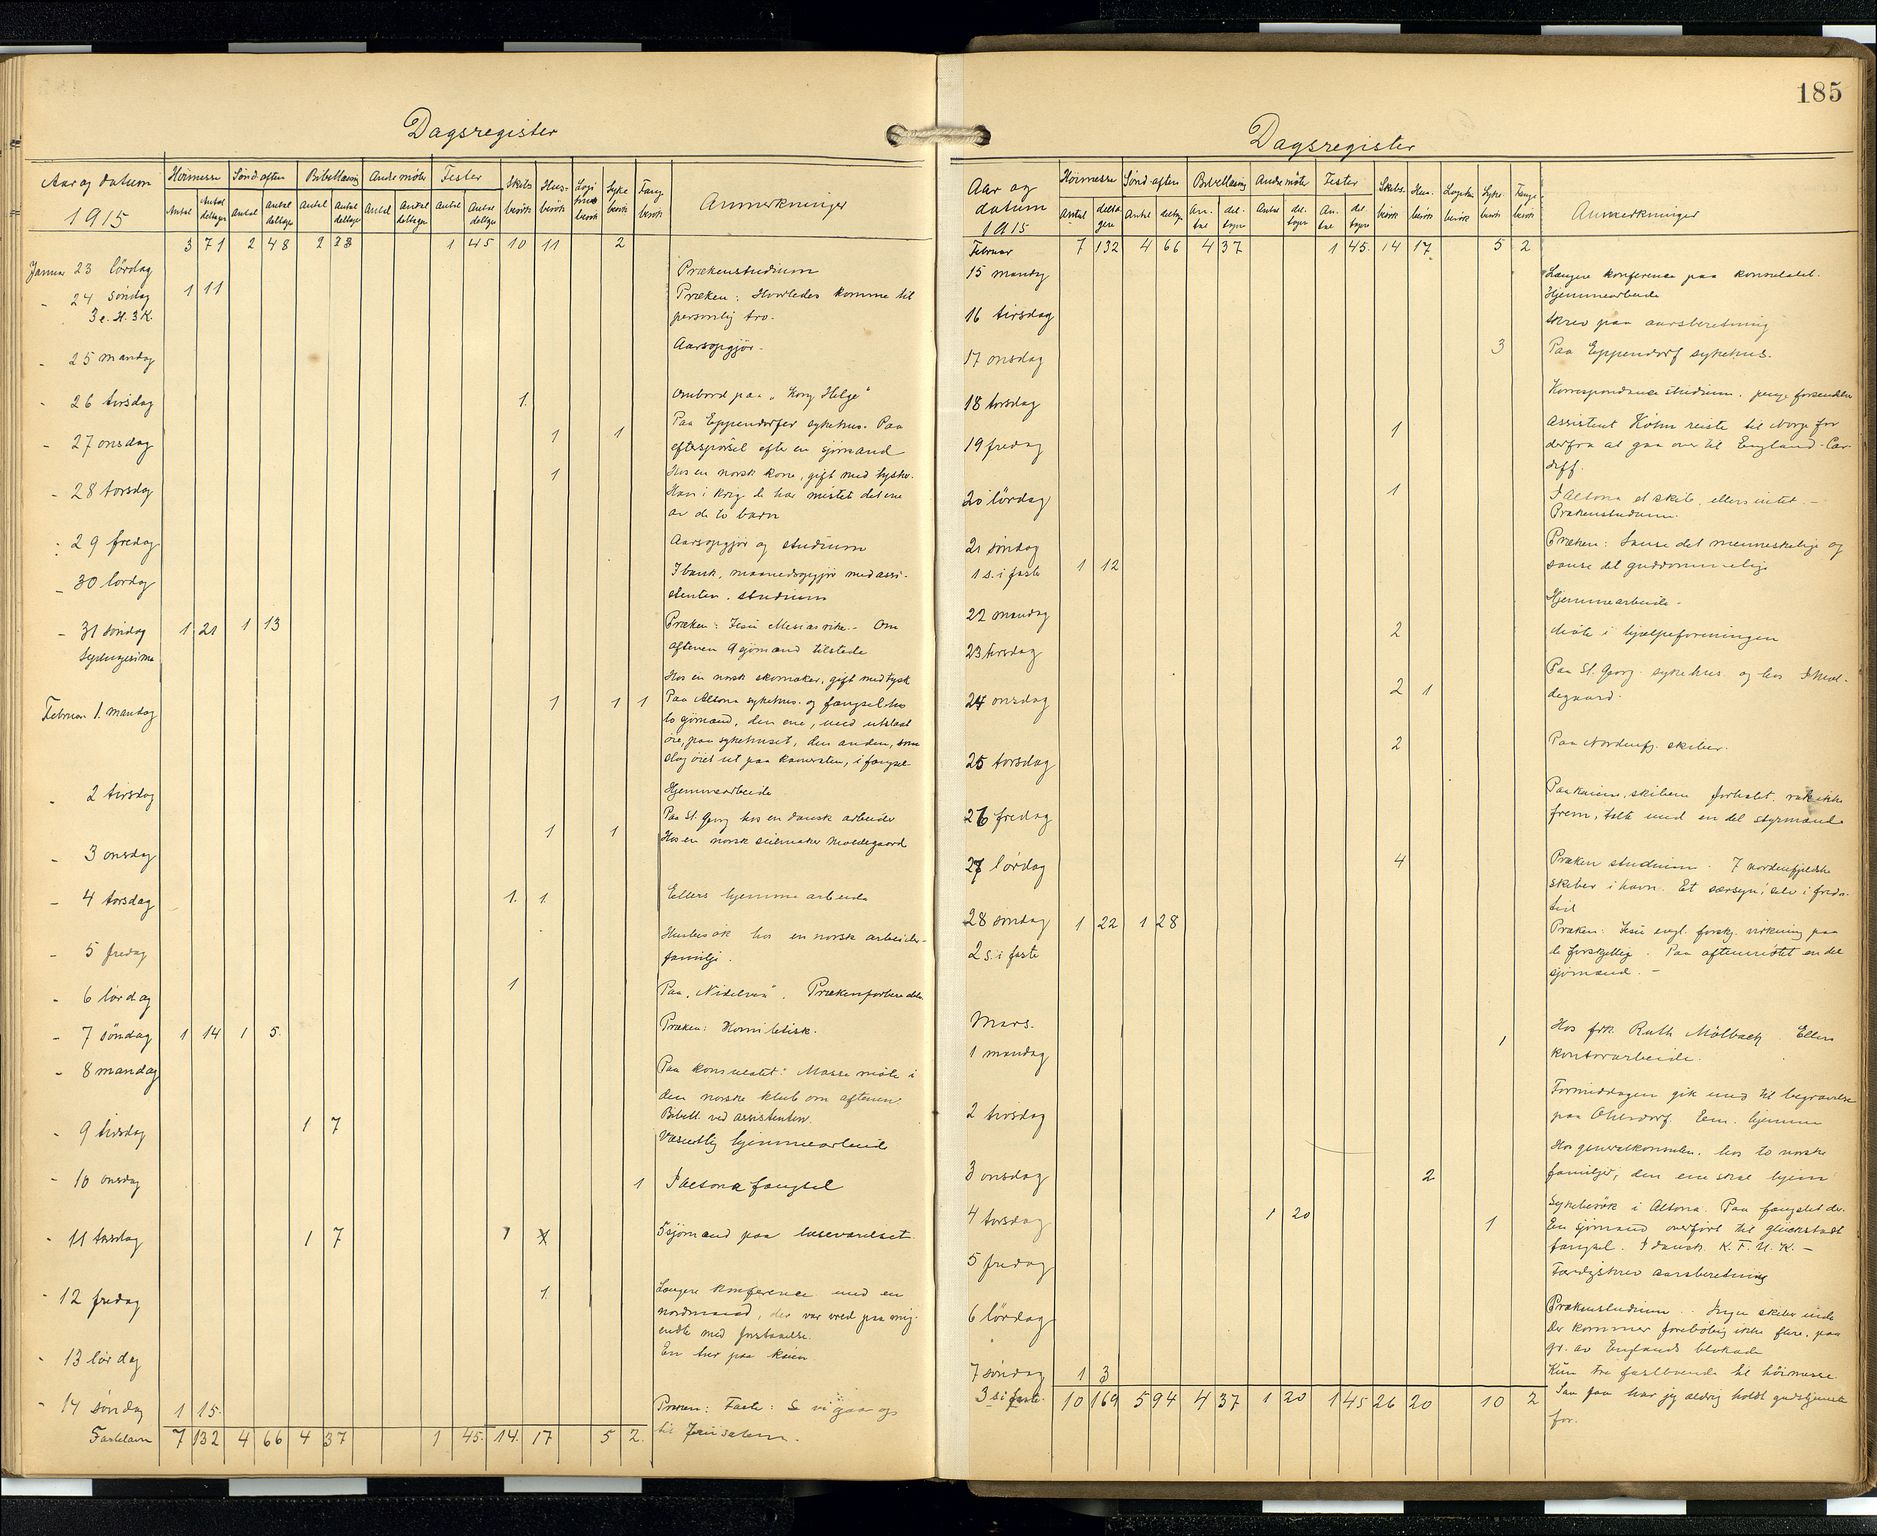 185
Dagsregister
Aar og datum
1915
Høimesse
Sönd.aften
Bibellæsnig
Andre møter
Fester
Skibs
besök
Hus-
besök
Syke
besök
Fang
besök
Anmerkninger
Antal
Antal deltage
Antal
Antal deltage
Antal
Antal deltage
Antal
Antal deltager
Antal
Antal deltage
3 71 2 48 2 23 1 45 10 11 2
Januar 23 lördag Prækenstudium
" 24 söndag 1 11 Præken: Hvorledes komme til
3 e. H. 3 K. personlig tro.
25 mandag Aarsopgjör.
26 tirsdag 1. Ombord paa "Kong Helge"
27 onsdag 1 1 Paa Eppendorfer sykehus. Paa
efterspörsel efter en sjömand
28 torsdag 1 Hos en norsk kone, gift med tysker.
Han i krig de har mistet det ene
av de to barn
29 fredag Aarsopgjör og studium
30 lördag I bank, maanedsopgjör med assi-
stenten. Studium
31 söndag 1 21 1 13 Præken: Jesu Messiasrike.- Om
Septuagesima aftenen 9 sjömænd tilstede
Hos en norsk skomaker, gift med tysk
Februar 1. mandag 1 1 1 Paa Altona sykehus og fængsel hos
to sjömænd, den ene, med utslaat
öie, paa sykehuset, den anden, som
slog öiet ut paa kameraten, i fængsel
2 tirsdag Hjemmearbeide
Paa St. Georg hos en dansk arbeider
3 onsdag 1 1 Hos en norsk seilmaker Moldegaard
4 torsdag 1. 1. Ellers hjemmearbeide
5 fredag Husbesøk hos en norsk arbeider-
familje.
6 lördag 1 Paa "Nidelven". Prækenforberedelse
7 söndag 1 14 1 5. Præken: Homiletisk.
8 mandag Paa konsulatet. Masse møte i
den norske klub om aftenen
Bibell. ved assistenten.
9 tirsdag 1 7 Væsentlig hjemmearbeide
10 onsdag 1 I Altona fængsel
11 torsdag 1 7 1 5 sjömænd paa læseværelset.
12 fredag 1. Længere konference med en
nordmand, der var vred paa mig
endte med forstaaelse.
13 lördag En tur paa kaien
14 söndag 1 15. Præken: Faste: Se vi gaa op
Fastelavn 7 132 4 66 4 37 1 45. 14. 17 5 2. til Jerusalem.
Dagsregister
Aar og
datum
1915
Høimesse
Sönd.aften
Bibellæsnig
Andre möte
Fester
Skibs.
besök
Hus.
besök
Syke.
besök
Fange.
besök
Anmerkninger
Antal
deltagere
Antal
deltag
Antal
deltagere
Antal
deltagere
Antal
deltagere
Februar 7 132 4 66 4 37 1 45. 14 17. 5 2
15 mandag Længere konference paa konsulatet.
Hjemmearbeide
16 tirsdag Skrev paa aarsberetning
17 onsdag 3 Paa Eppendorf sykehus.
18 torsdag Korrespondanse studium. penge forsendelse
19 fredag 1 Assistent Köhn reiste til Norge for
derfra at gaa over til England - Car-
diff.
20 lördag 1 I Altona et skib, ellers intet. -
Prækenstudium.
21 söndag 1 12 Præken: Sanse det menneskelige og
1 s. i faste sanse det guddommelige
22 mandag Hjemmearbeide.
23 tirsdag 2 Møte i hjælpeforeningen
24 onsdag 2 1 Paa St. Georg sykehus og hos
degaard.
25 torsdag 2 Paa Nordenfj. skiber.
26 fredag Paa kaiene, skibene forhalet. rak ikke
frem, talte med en del styrmænd
27 lördag 4 Præken studium. 7 nordenfjeldske
skiber i havn. Et særsyn, selv i freds-
tid
28 søndag 1 22 1 28 Præken: Jesu evgl. forskj. virkning paa
2 s. i faste de forskjellige. Paa aftenmötet en del
sjömænd. -
Mars.
1 mandag 1 Hos frk. Ruth Mölbach. Ellers
kontorarbeide.
2 tirsdag Formiddagen gik med til begravelse
paa Ohlsdorf. Em. hjemme
3 onsdag 2 Hos generalkonsulen. hos to norske
familjer, den ene skal hjem
4 torsdag 1 20 1 Sykebesök i Altona. Paa fængslet der.
En sjömand overfört til Glückstadt
fængsel. I dansk K.F.U.K. -
5 fredag Færdigskrev aarsberetning
6 lördag Prækenstudium. Ingen skibe inde
Der kommer foreløbig ikke flere, paa
gr. av Englands blokade
7 söndag 1 3 Kun tre fastboende til höimesse.
3 s i faste. 10 169 5 94 4 37 1 20 1 45 26 20 10 2 Saa faa har jeg aldrig holdt gudstjeneste
for.